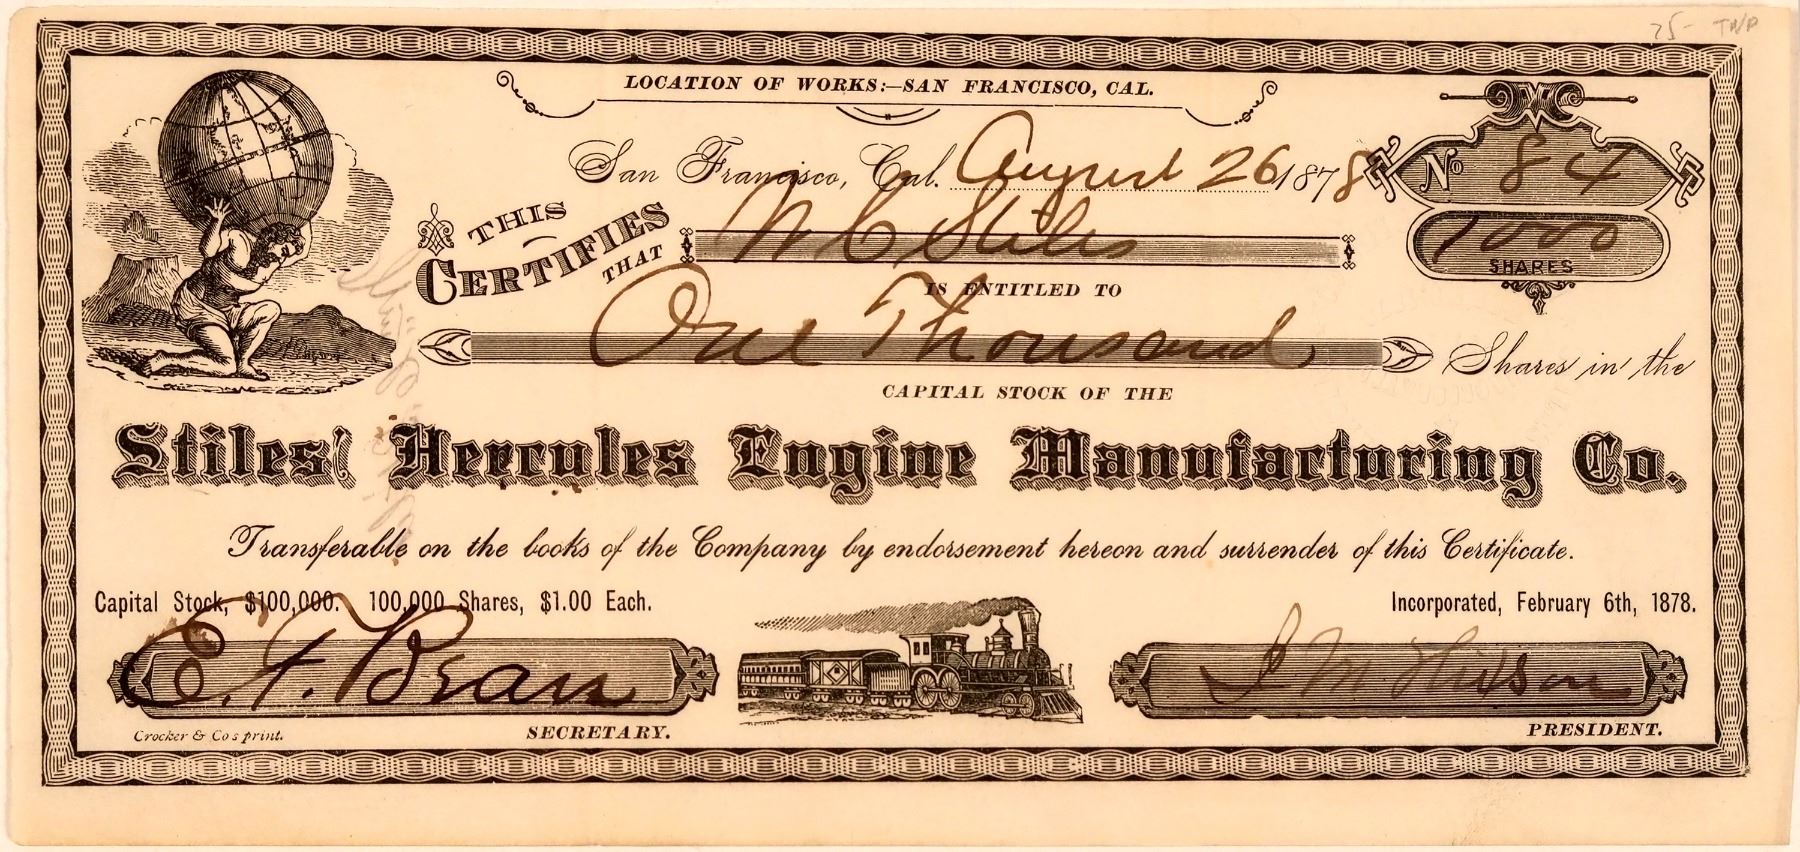 75- TN/A
LOCATION OF WORKS:—SAN FRANCISCO, CAL.
San Francisco, Cal. August 26 1878
No 84
THIS CERTIFIES THAT N C Stiles
1000
SHARES
IS ENTITLED TO
One Thousand Shares in the
CAPITAL STOCK OF THE
Stiles' Hercules Engine Manufacturing Co.
Transferable on the books of the Company by endorsement hereon and surrender of this Certificate.
Capital Stock, $100,000. 100,000 Shares, $1.00 Each.
Incorporated, February 6th, 1878.
E. F. Bean
Crocker & Cos print.
SECRETARY.
PRESIDENT.